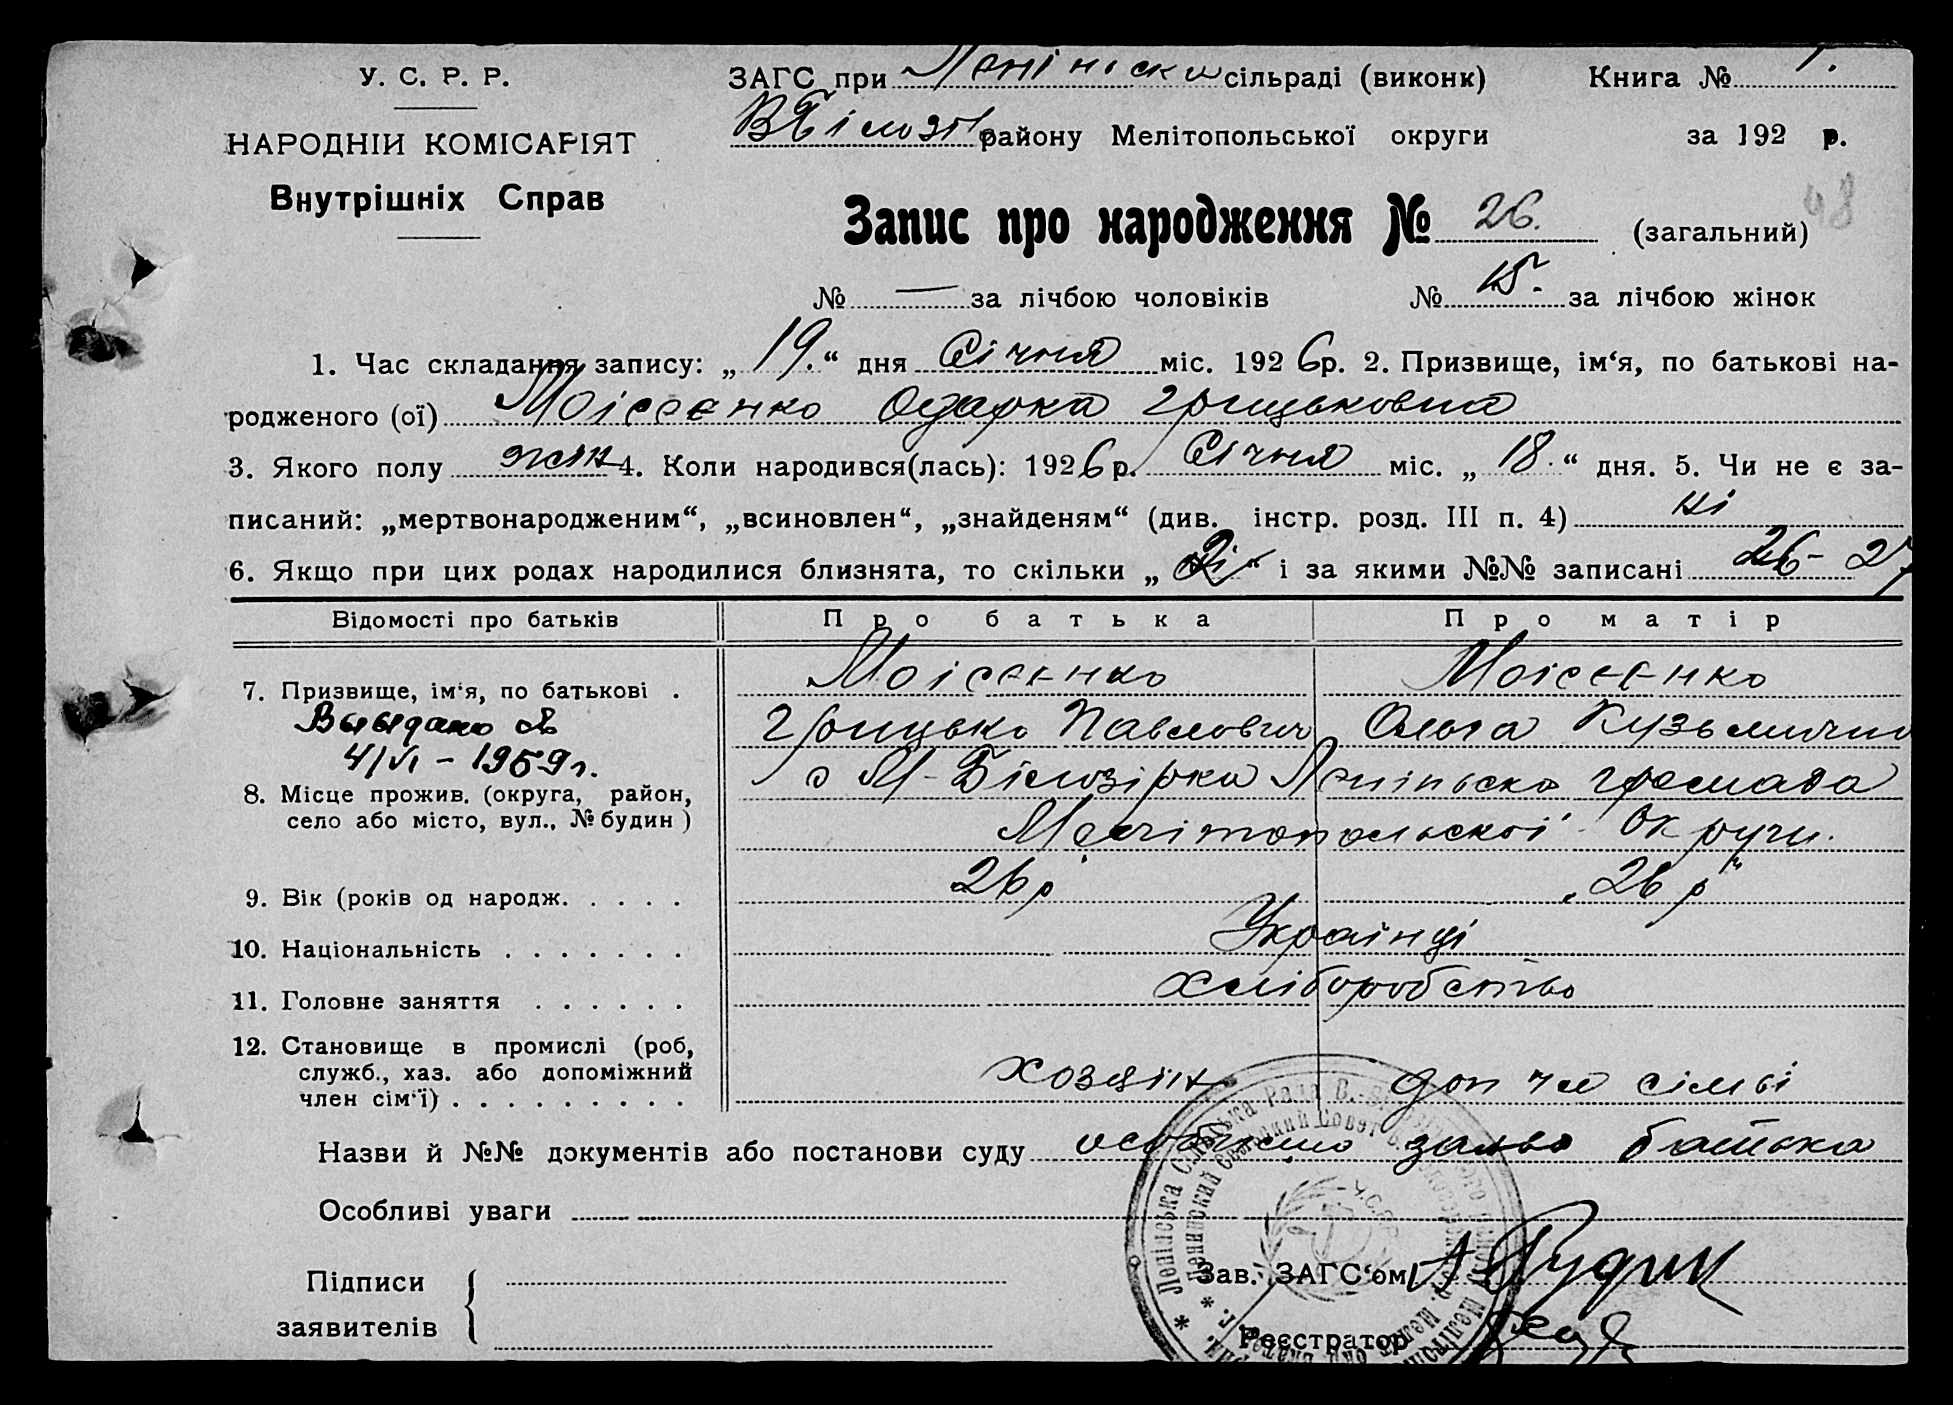 У. С. Р. Р.
НАРОДНІЙ КОМІСАРІЯТ
Внутрішніх Справ
ЗАГС при Ленінска сільраді (виконк) Книга № 1.
В Білозір району Мелітопольської округи за 192 р.
Запис про народження № 26. (загальний) 48
№ — за лічбою чоловіків № 15. за лічбою жінок
1. Час складання запису: „ 19. “ дня Січня міс. 192 6 р. 2. Призвище, ім‘я, по батькові на-
родженого (ої) Моісеєнко Одарка Грицьковна
3. Якого полу жін 4. Коли народився(лась): 192 6 р. Січня міс. „ 18. “ дня. 5. Чи не є за-
писаний: „мертвонародженим“, „всиновлен“, „знайденям“ (див. інстр. розд. III п. 4) ні
6. Якщо при цих родах народилися близнята, то скільки „ 2і “ і за якими №№ записані 26-27
Відомості про батьків Про батька Про матір
7. Призвище, ім‘я, по батькові . Моісеєнко Моісеєнко
Грицько Павлович Ольга Кузьмична
Выыдано
4/VI - 1959 г.
8. Місце прожив. (округа, район,
село або місто, вул., № будин ) с М-Білозірка Леніньска громада
Мелітопольскої Округи.
9. Вік (років од народж. . . . . 26 р „26 р“
10. Національність . . . . . . . Українці
11. Головне заняття . . . . . . хліборобство
12. Становище в промислі (роб,
служб., хаз. або допоміжний
член сім‘ї) . . . . . . . . . хозяїн доп чл сімьі
Назви й №№ документів або постанови суду особисто заява батька
Особливі уваги
Підписи
заявителів
Зав. ЗАГС‘ом А Рудик
Реєстратор
* Ленінська Сільська Рада В.-
* Ленинский Сельский Совет В.
У.С.Р.Р.